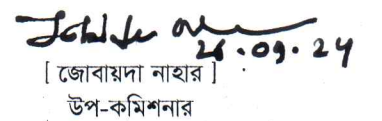 28.09.24
[ জোবায়দা নাহার ]
উপ-কমিশনার